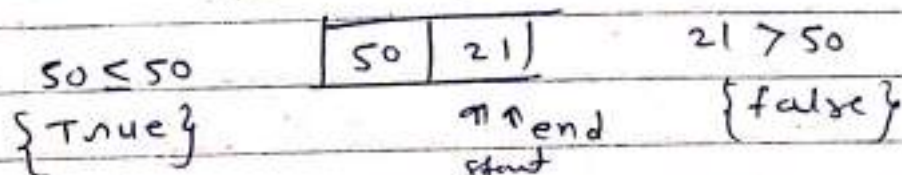 50 ≤ 50 | 50 | 21 | 21 > 50
{True} ↑↑ end {false}
start